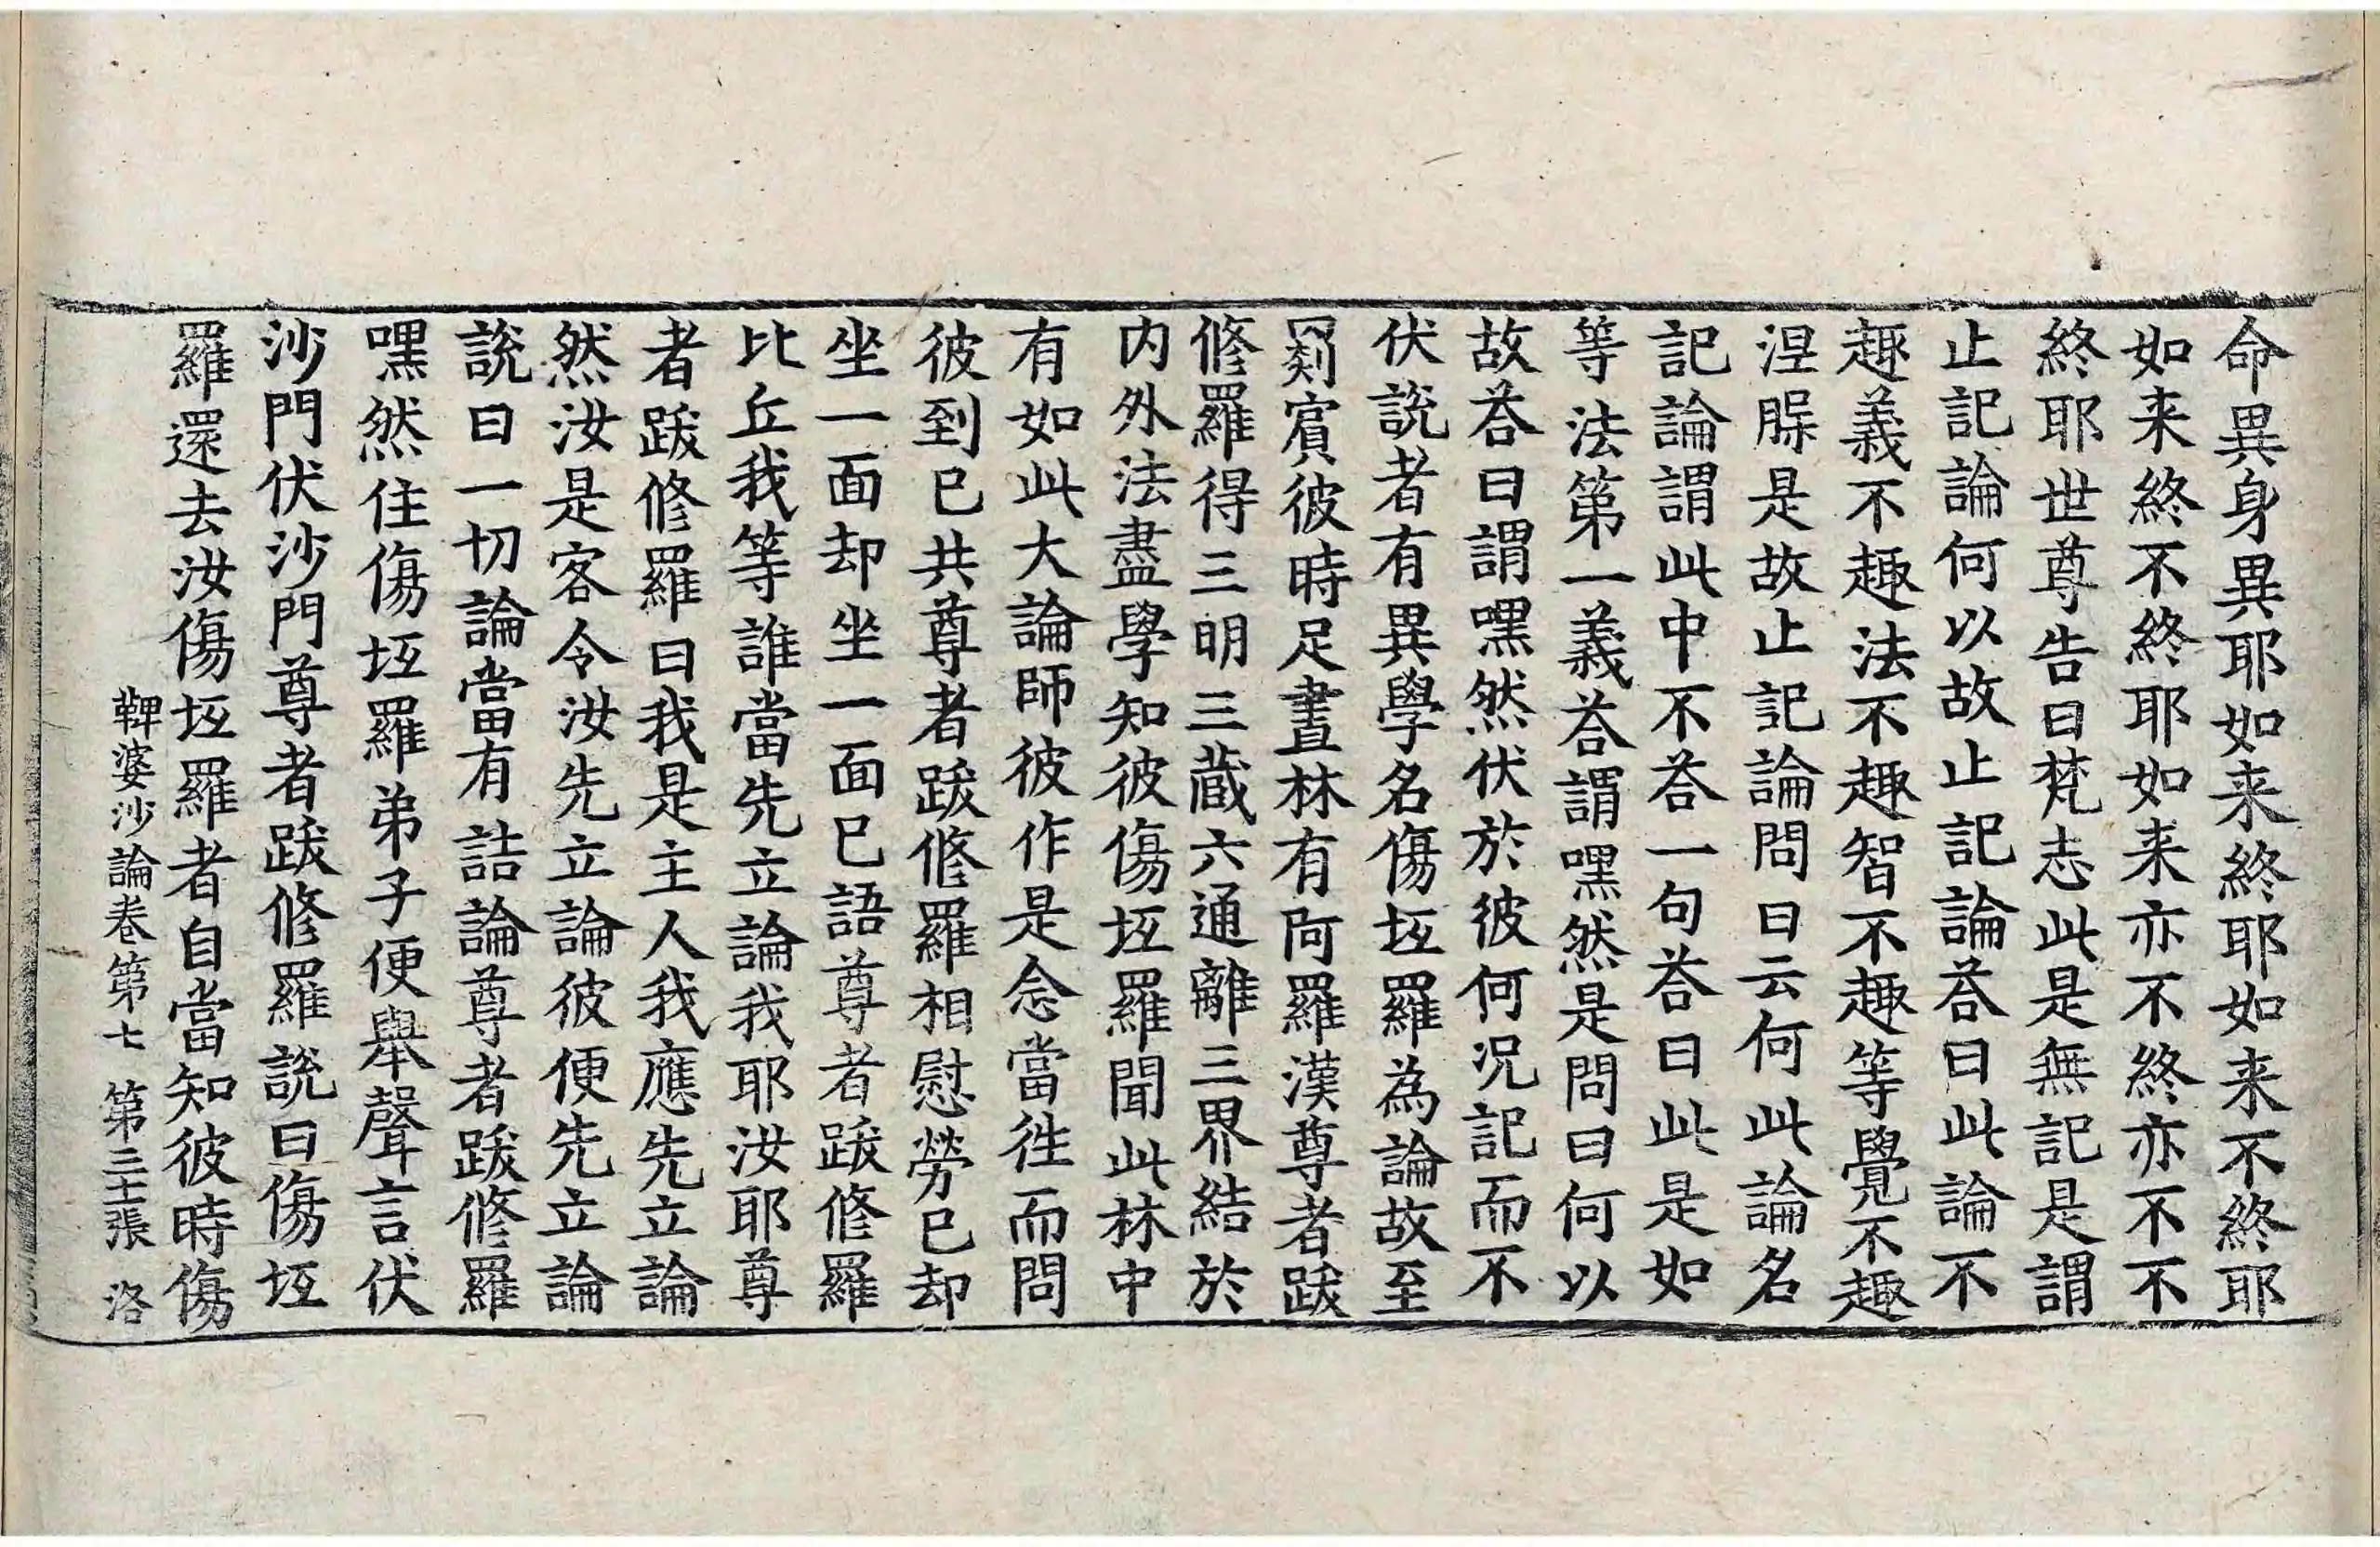 命異身異耶如来終耶如来不終耶
如来終不終耶如来亦不終亦不不
終耶世尊告曰梵志此是無記是謂
止記論何以故止記論荅曰此論不
趣義不趣法不趣智不趣等覺不趣
涅脲是故止記論問曰云何此論名
記論謂此中不荅一句荅曰此是如
等法第一義荅謂嘿然是問曰何以
故荅曰謂嘿然伏於彼何況記而不
伏説者有異學名傷㘽羅為論故至
罽賔彼時足晝林有阿羅漢尊者跋
修羅得三明三蔵六通離三界結於
内外法盡學知彼傷㘽羅聞此林中
有如此大論師彼作是念當徃而問
彼到已共尊者跋修羅相慰勞已却
坐一面却坐一面已語尊者跋修羅
比丘我等誰當先立論我耶汝耶尊
者跋修羅曰我是主人我應先立論
然汝是客令汝先立論彼便先立論
説曰一切論當有詰論尊者跋修羅
嘿然住傷㘽羅弟子便舉聲言伏
沙門伏沙門尊者跋修羅説曰傷㘽
羅還去汝傷㘽羅者自當知彼時傷
鞞婆沙論卷第七 第三十張 洛